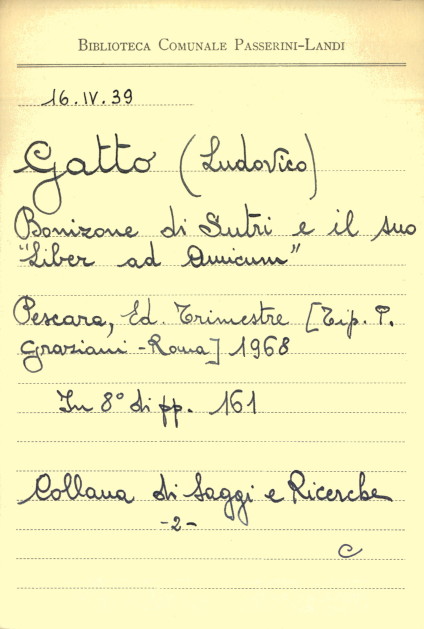 BIBLIOTECA COMUNALE PASSERINI-LANDI
16.IV.39
Gatto (Ludovico)
Bonizone di Sutri e il suo
"Liber ad Amicum"
Pescara, Ed. Trimestre [Tip. P.
Graziani - Roma] 1968
In 8° di pp. 161
Collana di Saggi e Ricerche
-2-
C